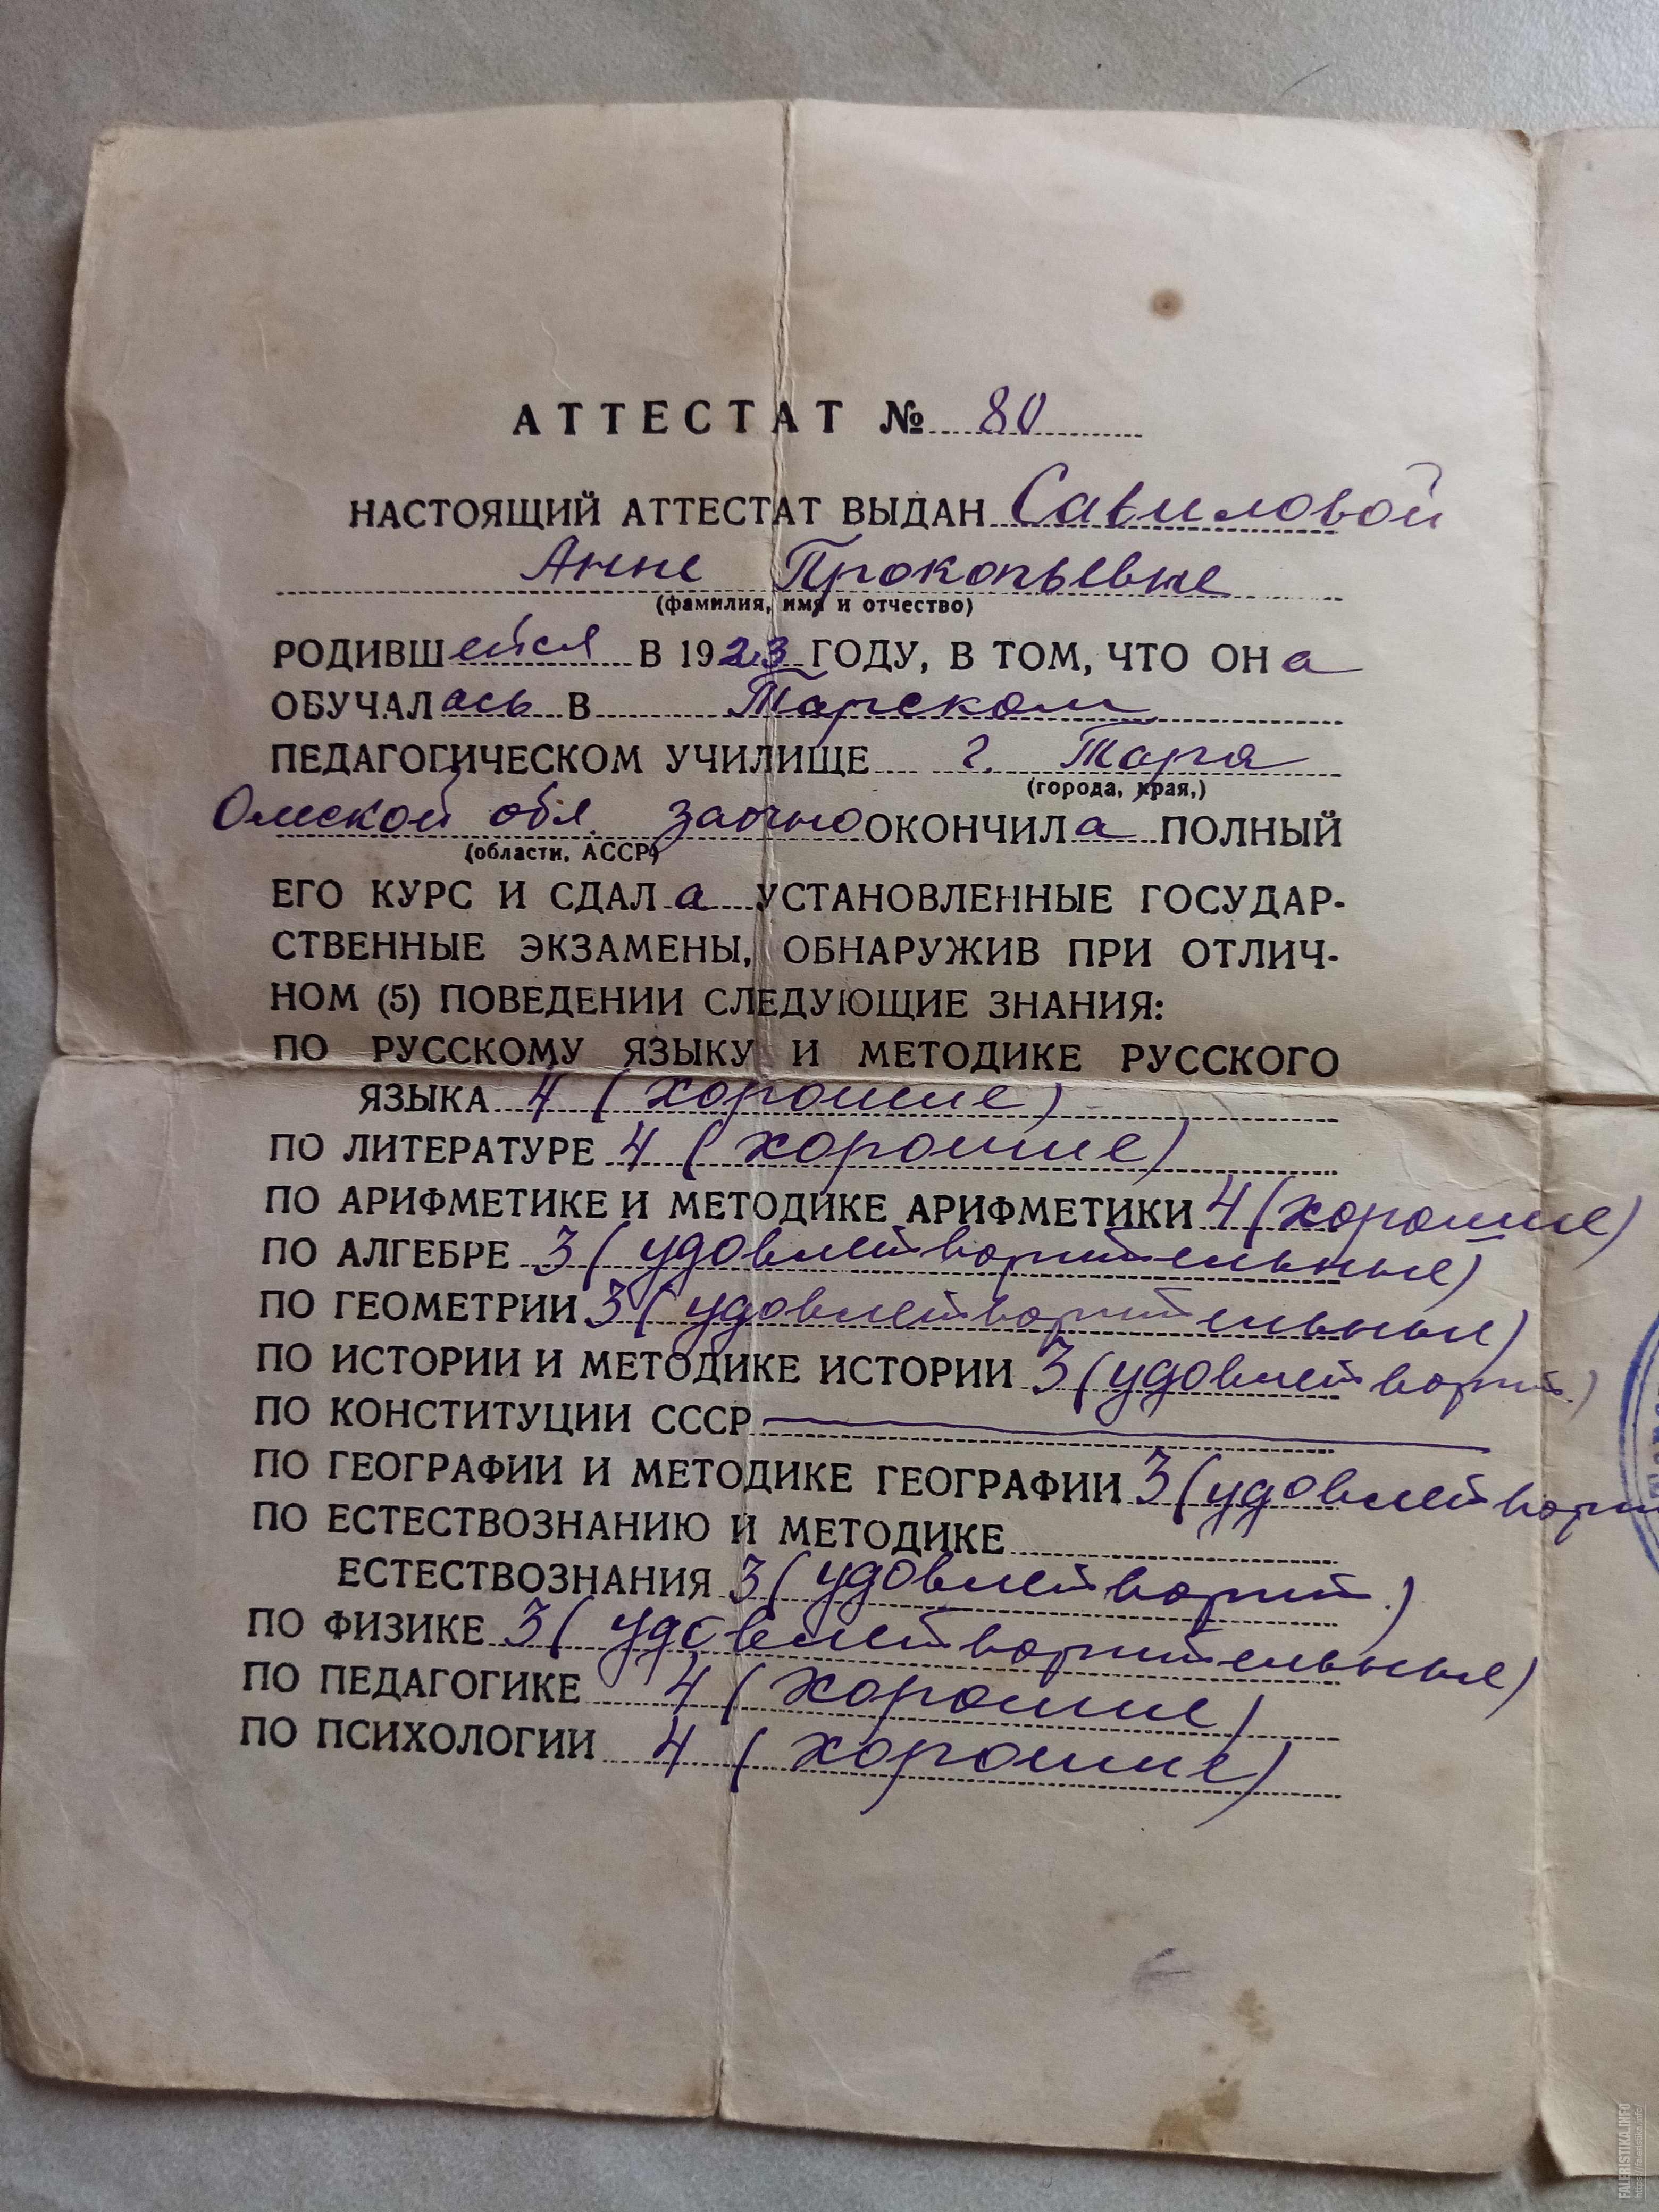 АТТЕСТАТ № 80
НАСТОЯЩИЙ АТТЕСТАТ ВЫДАН Савиловой
Анне Прокопьевне
(фамилия, имя и отчество)
РОДИВШейся В 1923 ГОДУ, В ТОМ, ЧТО ОНа
ОБУЧАЛась В Тарском
ПЕДАГОГИЧЕСКОМ УЧИЛИЩЕ г. Тара
(города, края,)
Омской обл. заочно ОКОНЧИЛа ПОЛНЫЙ
(области, АССР)
ЕГО КУРС И СДАЛа УСТАНОВЛЕННЫЕ ГОСУДАР-
СТВЕННЫЕ ЭКЗАМЕНЫ, ОБНАРУЖИВ ПРИ ОТЛИЧ-
НОМ (5) ПОВЕДЕНИИ СЛЕДУЮЩИЕ ЗНАНИЯ:
ПО РУССКОМУ ЯЗЫКУ И МЕТОДИКЕ РУССКОГО
ЯЗЫКА 4 (хорошие)
ПО ЛИТЕРАТУРЕ 4 (хорошие)
ПО АРИФМЕТИКЕ И МЕТОДИКЕ АРИФМЕТИКИ 4 (хорошие)
ПО АЛГЕБРЕ 3 (удовлетворительные)
ПО ГЕОМЕТРИИ 3 (удовлетворительные)
ПО ИСТОРИИ И МЕТОДИКЕ ИСТОРИИ 3 (удовлетворит.)
ПО КОНСТИТУЦИИ СССР
ПО ГЕОГРАФИИ И МЕТОДИКЕ ГЕОГРАФИИ 3 (удовлетвори
ПО ЕСТЕСТВОЗНАНИЮ И МЕТОДИКЕ
ЕСТЕСТВОЗНАНИЯ 3 (удовлетворит.)
ПО ФИЗИКЕ 3 (удовлетворительные)
ПО ПЕДАГОГИКЕ 4 (хорошие)
ПО ПСИХОЛОГИИ 4 (хорошие)
FALERISTIKA.INFO
https://faleristika.info/